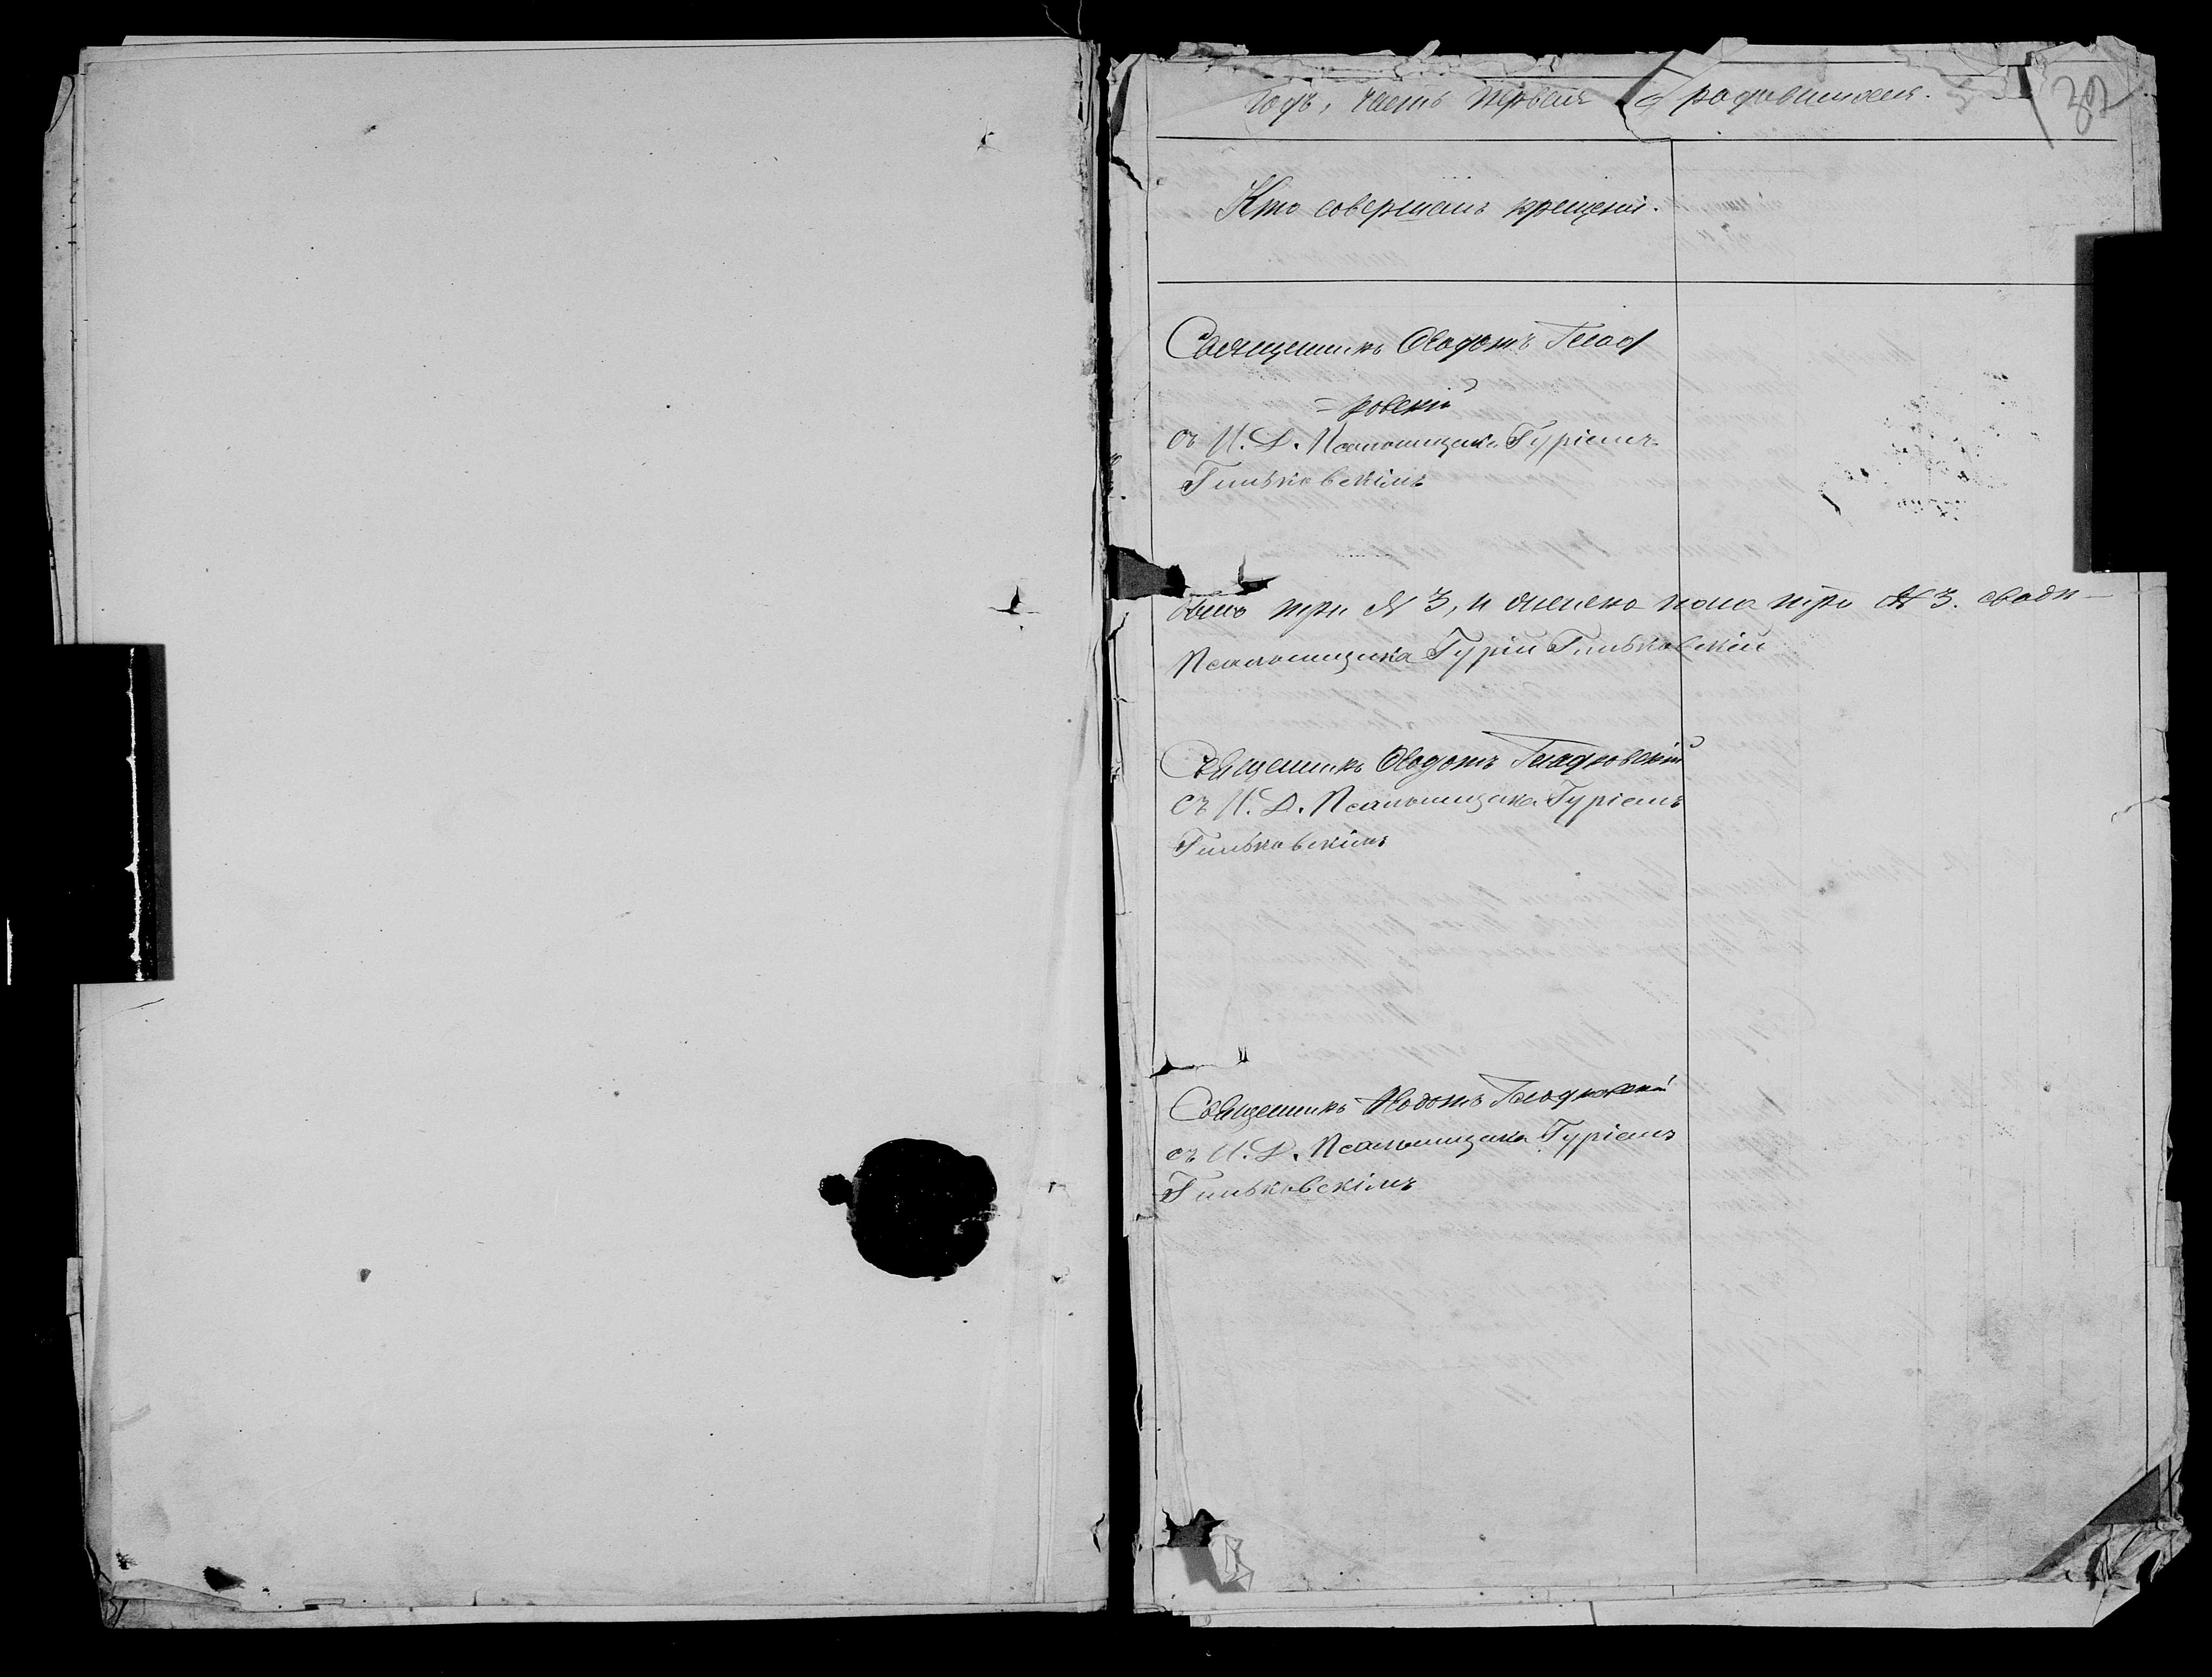 Годъ, часть первая о родившихся.
32
Кто совершалъ крещеніе.
Священникъ Ѳеодотъ Глад
=ковскій
съ И. Д. Псаломщика Гуріемъ
Гиньковскимъ
при № 3, и при № 3.
Псаломщика Гурій Гиньковскій
Священникъ Ѳеодотъ Гладковскій
съ И. Д. Псаломщика Гуріемъ
Гиньковскимъ
Священникъ Ѳеодотъ Гладковскій
съ И. Д. Псаломщика Гуріемъ
Гиньковскимъ